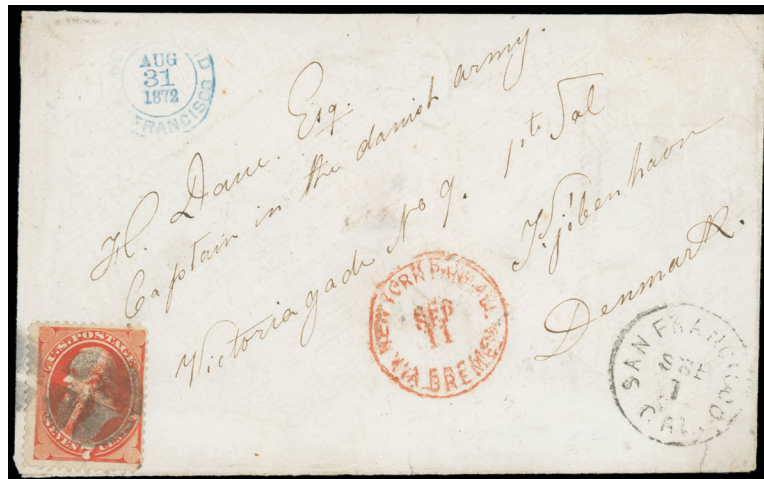 AUG
31
1872
FRANCISCO
H. Daue. Esq.
Captain in the danish army.
Victoriagade No 9. 1ste Sal
Kjøbenhavn
Denmark.
NEW YORK PAID ALL
SEP
11
VIA BREMEN
SAN FRANCISCO
SEP
1
CAL.
U.S. POSTAGE
SEVEN 7 CENTS